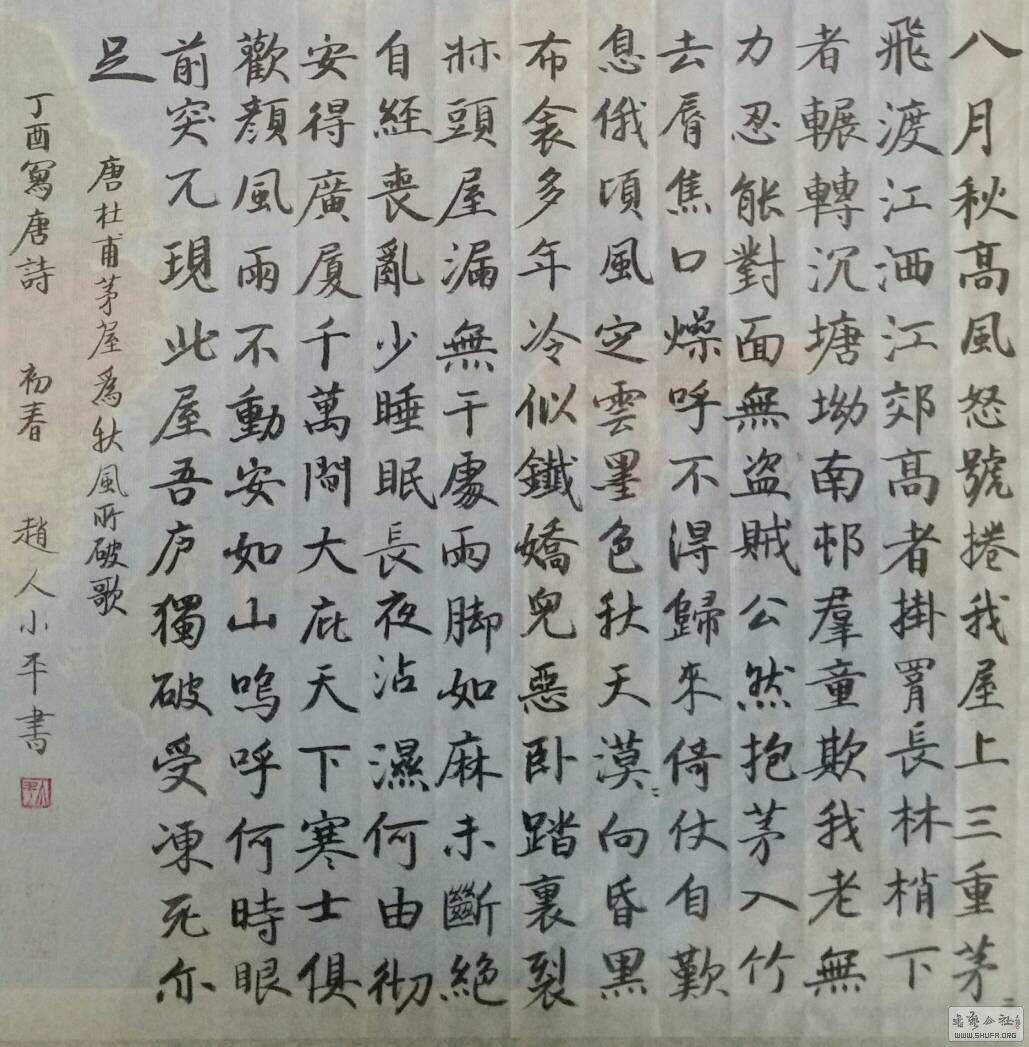 八月秋高風怒號捲我屋上三重茅〻
飛渡江洒江郊高者掛罥長林梢下
者輾轉沉塘坳南邨羣童欺我老無
力忍能對面無盜賊公然抱茅入竹
去脣焦口燥呼不得歸來倚仗自歎
息俄頃風定雲墨色秋天漠〻向昏黑
布衾多年冷似鐵嬌兒惡卧踏裏裂
牀頭屋漏無干處雨脚如麻未斷絕
自經喪亂少睡眠長夜沾濕何由彻
安得廣厦千萬間大庇天下寒士俱
歡顏風雨不動安如山嗚呼何時眼
前突兀現此屋吾庐獨破受凍死亦
足
唐杜甫茅屋爲秋風所破歌
丁酉寫唐詩 初春 趙人小平書
WWW.SHUFA.ORG